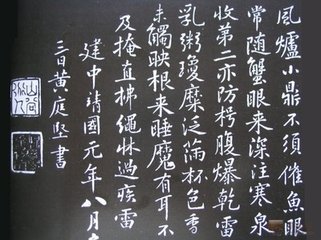 風爐小鼎不須催魚眼
常随蟹眼来深注寒泉
收第二亦防枵腹爆乾雷
乳粥瓊糜泛滿杯色香
未觸映根来睡魔有耳不
及掩直拂繩牀過疾雷
建中靖國元年八月
三日黃庭堅書
山谷道人